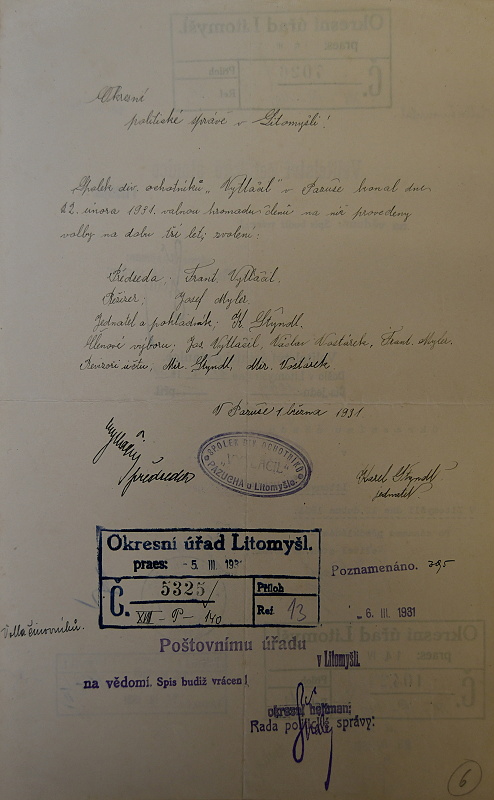 Okresní
politické správě v Litomyšli!
Spolek div. ochotníků „Vytlačil" v Pazuše konal dne
22. února 1931. valnou hromadu členů na níž provedeny
volby na dobu tří let; zvoleni:
Předseda: Frant. Vytlačil.
Režiser: Josef Myler.
Jednatel a pokladník: K. Štyndl.
Členové výboru: Jos. Vytlačil, Václav Vostárek, Frant. Myler.
Revizoři účtů, Mir. Štyndl, Mir. Vostárek
V Pazuše 1 března 1931
předseda
SPOLEK DIV. OCHOTNÍKŮ
„VYTLAČIL"
PAZUCHA u Litomyšle.
Karel Štyndl
jednatel
Okresní úřad Litomyšl.
praes: -5. III. 1931
Č. 5325/
XVII - P - 140
Příloh
Ref. 13
Poznamenáno.
-6. III. 1931
Volba činovníků.
Poštovnímu úřadu
v Litomyšli.
na vědomí. Spis budiž vrácen!
okresní hejtman:
Rada politické správy:
6